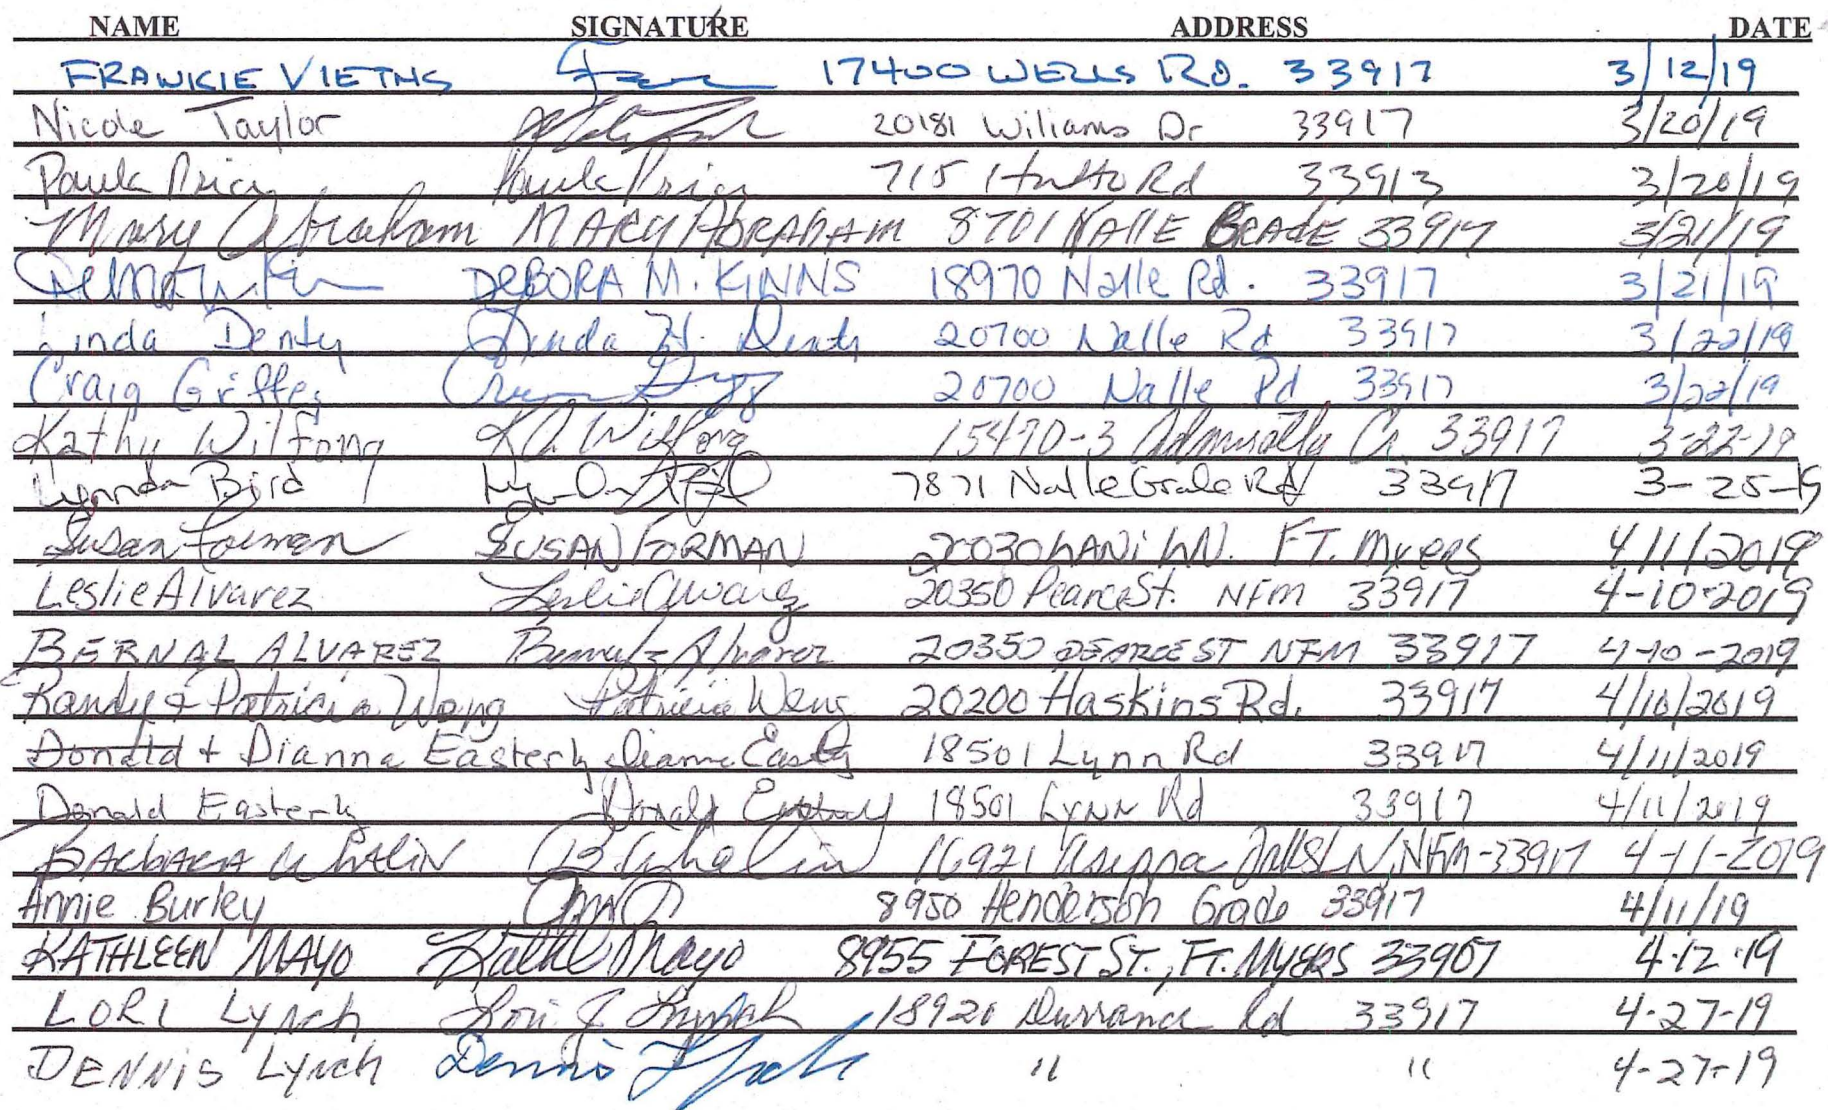 NAME SIGNATURE ADDRESS DATE
FRANKIE VIETHS 17400 WELLS RD. 33917 3/12/19
Nicole Taylor 20181 Wiliams Dr 33917 3/20/19
Paula Price Paula Price 715 Hutto Rd 33913 3/20/19
Mary Abraham MARY ABRAHAM 8701 NALLE GRADE 33917 3/21/19
DEBORA M. KINNS 18970 Nalle Rd. 33917 3/21/19
Linda Denty Linda H. Denty 20700 Nalle Rd 33917 3/22/19
Craig Griffey 20700 Nalle Rd 33917 3/22/19
Kathy Wilfong KA Wilfong 15470-3 Admiralty Cr 33917 3-22-19
Lynnda Bird 7871 Nalle Grade Rd 33917 3-25-19
Susan Forman SUSAN FORMAN 20030 LANI LN. FT. Myers 4/11/2019
Leslie Alvarez Leslie Alvarez 20350 Pearce St. NFM 33917 4-10-2019
BERNAL ALVAREZ Alvarez 20350 PEARCE ST NFM 33917 4-10-2019
Randy & Patricia Weng Patricia Weng 20200 Haskins Rd. 33917 4/10/2019
Donald + Dianna Easterly Dianna Easterly 18501 Lynn Rd 33917 4/11/2019
Donald Easterly Donald Easterly 18501 Lynn Rd 33917 4/11/2019
BARBARA WHALIN B. Whalin 16921 LN, NFM-33917 4-11-2019
Annie Burley 8950 Henderson Grade 33917 4/11/19
KATHLEEN MAYO Mayo 8955 FOREST ST., FT. MYERS 33907 4.12.19
LORI Lynch Lori J Lynch 18920 Durrance Rd 33917 4-27-19
DENNIS Lynch Dennis Lynch " " 4-27-19